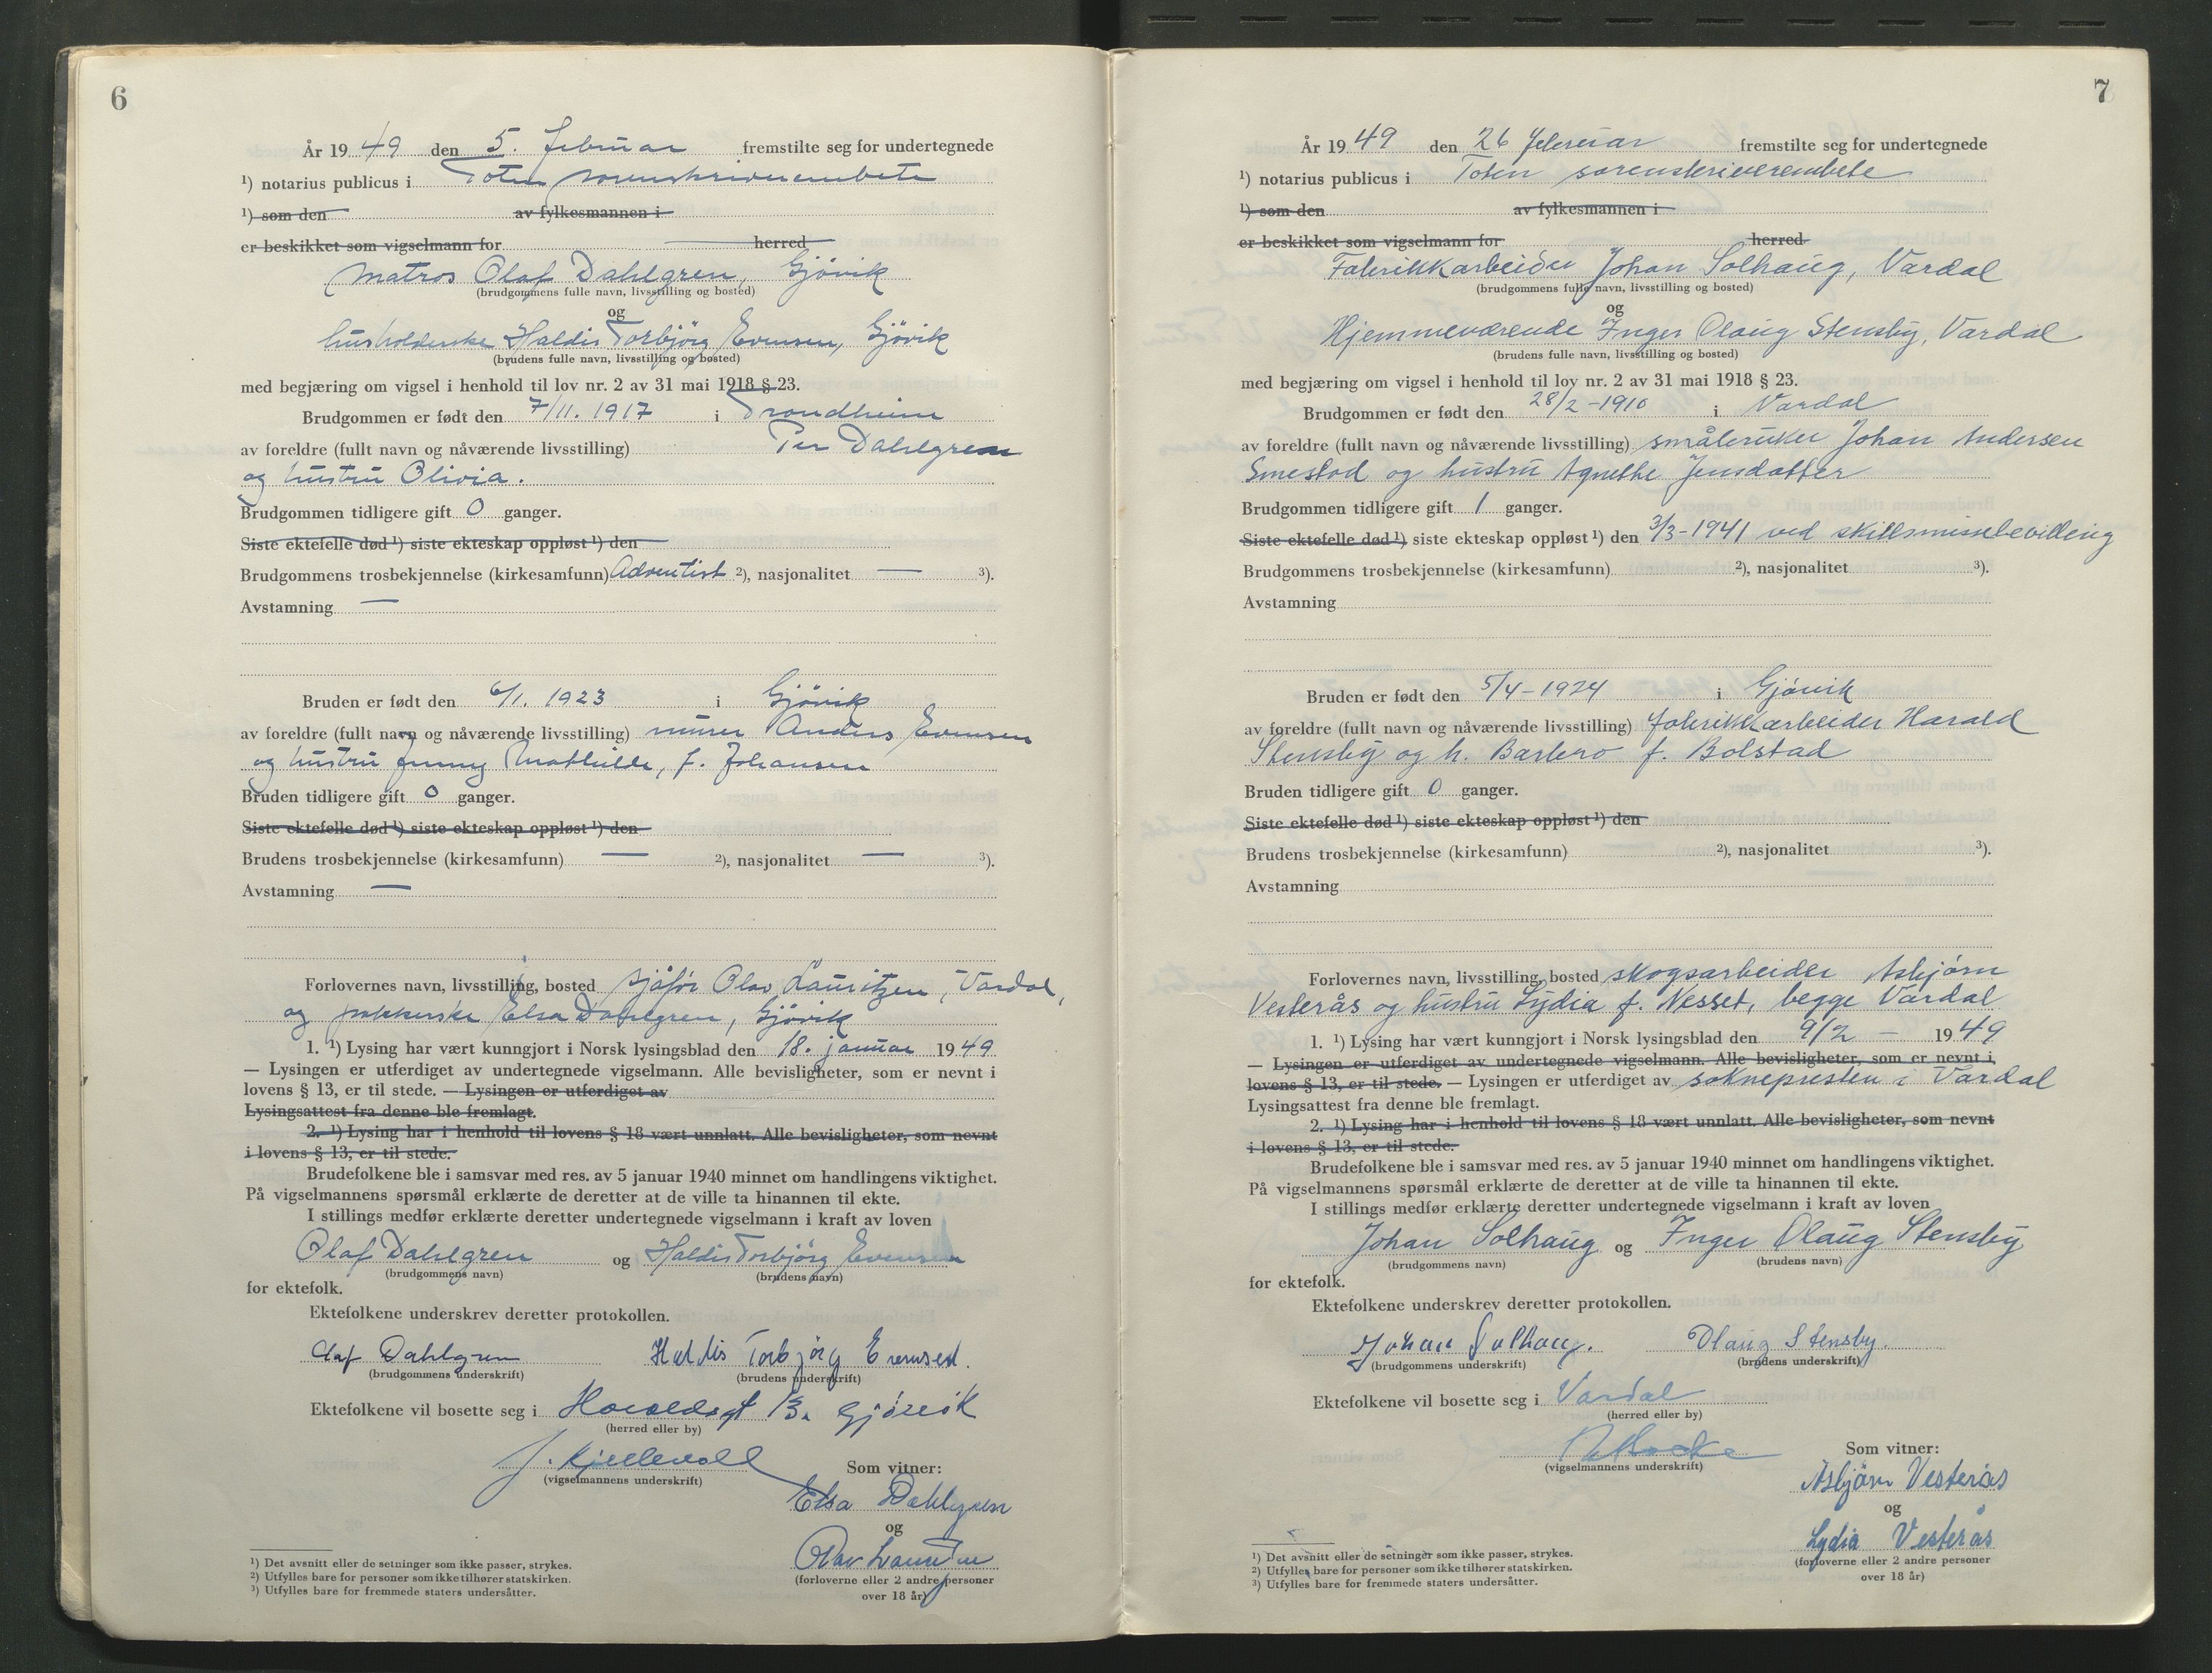 6
År 1949 den 5. februar fremstilte seg for undertegnede
¹) notarius publicus i Toten sorenskriverembete
¹) som den av fylkesmannen i
er beskikket som vigselmann for herred
Matros Olaf Dahlgren, Gjövik
(brudgommens fulle navn, livsstilling og bosted)
og
husholderske Haldis Torbjörg Evensen, Gjövik
(brudens fulle navn, livsstilling og bosted)
med begjæring om vigsel i henhold til lov nr. 2 av 31 mai 1918 § 23.
Brudgommen er født den 7/11. 1917 i Trondheim
av foreldre (fullt navn og nåværende livsstilling) Per Dahlgren
og hustru Olivia.
Brudgommen tidligere gift 0 ganger.
Siste ektefelle død ¹) siste ekteskap oppløst ¹) den
Brudgommens trosbekjennelse (kirkesamfunn) Adventist ²), nasjonalitet — ³).
Avstamning —
Bruden er født den 6/1. 1923 i Gjövik
av foreldre (fullt navn og nåværende livsstilling) murer Anders Evensen
og hustru Jenny Mathilde, f. Johansen
Bruden tidligere gift 0 ganger.
Siste ektefelle død ¹) siste ekteskap oppløst ¹) den
Brudens trosbekjennelse (kirkesamfunn) — ²), nasjonalitet — ³).
Avstamning —
Forlovernes navn, livsstilling, bosted sjåför Olav Lauritzen, Vardal,
og Elsa Dahlgren, Gjövik
1. ¹) Lysing har vært kunngjort i Norsk lysingsblad den 18. januar 1949
— Lysingen er utferdiget av undertegnede vigselmann. Alle bevisligheter, som er nevnt i
lovens § 13, er til stede. — Lysingen er utferdiget av
Lysingsattest fra denne ble fremlagt.
2. ¹) Lysing har i henhold til lovens § 18 vært unnlatt. Alle bevisligheter, som nevnt
i lovens § 13, er til stede.
Brudefolkene ble i samsvar med res. av 5 januar 1940 minnet om handlingens viktighet.
På vigselmannens spørsmål erklærte de deretter at de ville ta hinannen til ekte.
I stillings medfør erklærte deretter undertegnede vigselmann i kraft av loven
Olaf Dahlgren og Haldis Torbjörg Evensen
(brudgommens navn) (brudens navn)
for ektefolk.
Ektefolkene underskrev deretter protokollen.
Olaf Dahlgren Haldis Torbjörg Evensen.
(brudgommens underskrift) (brudens underskrift)
Ektefolkene vil bosette seg i Haraldsgt 13. Gjövik
(herred eller by)
J. Kjellevold
(vigselmannens underskrift)
Som vitner:
Elsa Dahlgren
og
Olav Lauritzen
(forloverne eller 2 andre personer
over 18 år)
¹) Det avsnitt eller de setninger som ikke passer, strykes.
²) Utfylles bare for personer som ikke tilhører statskirken.
³) Utfylles bare for fremmede staters undersåtter.
7
År 1949 den 26 februar fremstilte seg for undertegnede
¹) notarius publicus i Toten sorenskriverembete
¹) som den av fylkesmannen i
er beskikket som vigselmann for herred
Fabrikkarbeider Johan Solhaug, Vardal
(brudgommens fulle navn, livsstilling og bosted)
og
Hjemmeværende Inger Olaug Stensby, Vardal
(brudens fulle navn, livsstilling og bosted)
med begjæring om vigsel i henhold til lov nr. 2 av 31 mai 1918 § 23.
Brudgommen er født den 28/2-1910 i Vardal
av foreldre (fullt navn og nåværende livsstilling) småbruker Johan Andersen
Smestad og hustru Agnethe Jensdatter
Brudgommen tidligere gift 1 ganger.
Siste ektefelle død ¹) siste ekteskap oppløst ¹) den 3/3-1941 ved skillsmissebevilling
Brudgommens trosbekjennelse (kirkesamfunn) ²), nasjonalitet ³).
Avstamning
Bruden er født den 5/4-1924 i Gjövik
av foreldre (fullt navn og nåværende livsstilling) fabrikkarbeider Harald
Stensby og h. Barbro f. Bolstad
Bruden tidligere gift 0 ganger.
Siste ektefelle død ¹) siste ekteskap oppløst ¹) den
Brudens trosbekjennelse (kirkesamfunn) ²), nasjonalitet ³).
Avstamning
Forlovernes navn, livsstilling, bosted skogsarbeider Asbjørn
Vesterås og hustru Lydia f. Nesset, begge Vardal
1. ¹) Lysing har vært kunngjort i Norsk lysingsblad den 9/2 — 1949
— Lysingen er utferdiget av undertegnede vigselmann. Alle bevisligheter, som er nevnt i
lovens § 13, er til stede. — Lysingen er utferdiget av soknepresten i Vardal
Lysingsattest fra denne ble fremlagt.
2. ¹) Lysing har i henhold til lovens § 18 vært unnlatt. Alle bevisligheter, som nevnt
i lovens § 13, er til stede.
Brudefolkene ble i samsvar med res. av 5 januar 1940 minnet om handlingens viktighet.
På vigselmannens spørsmål erklærte de deretter at de ville ta hinannen til ekte.
I stillings medfør erklærte deretter undertegnede vigselmann i kraft av loven
Johan Solhaug og Inger Olaug Stensby
(brudgommens navn) (brudens navn)
for ektefolk.
Ektefolkene underskrev deretter protokollen.
Johan Solhaug. Olaug Stensby.
(brudgommens underskrift) (brudens underskrift)
Ektefolkene vil bosette seg i Vardal
(herred eller by)
(vigselmannens underskrift)
Som vitner:
Asbjörn Vesterås
og
Lydia Vesterås
(forloverne eller 2 andre personer
over 18 år)
¹) Det avsnitt eller de setninger som ikke passer, strykes.
²) Utfylles bare for personer som ikke tilhører statskirken.
³) Utfylles bare for fremmede staters undersåtter.